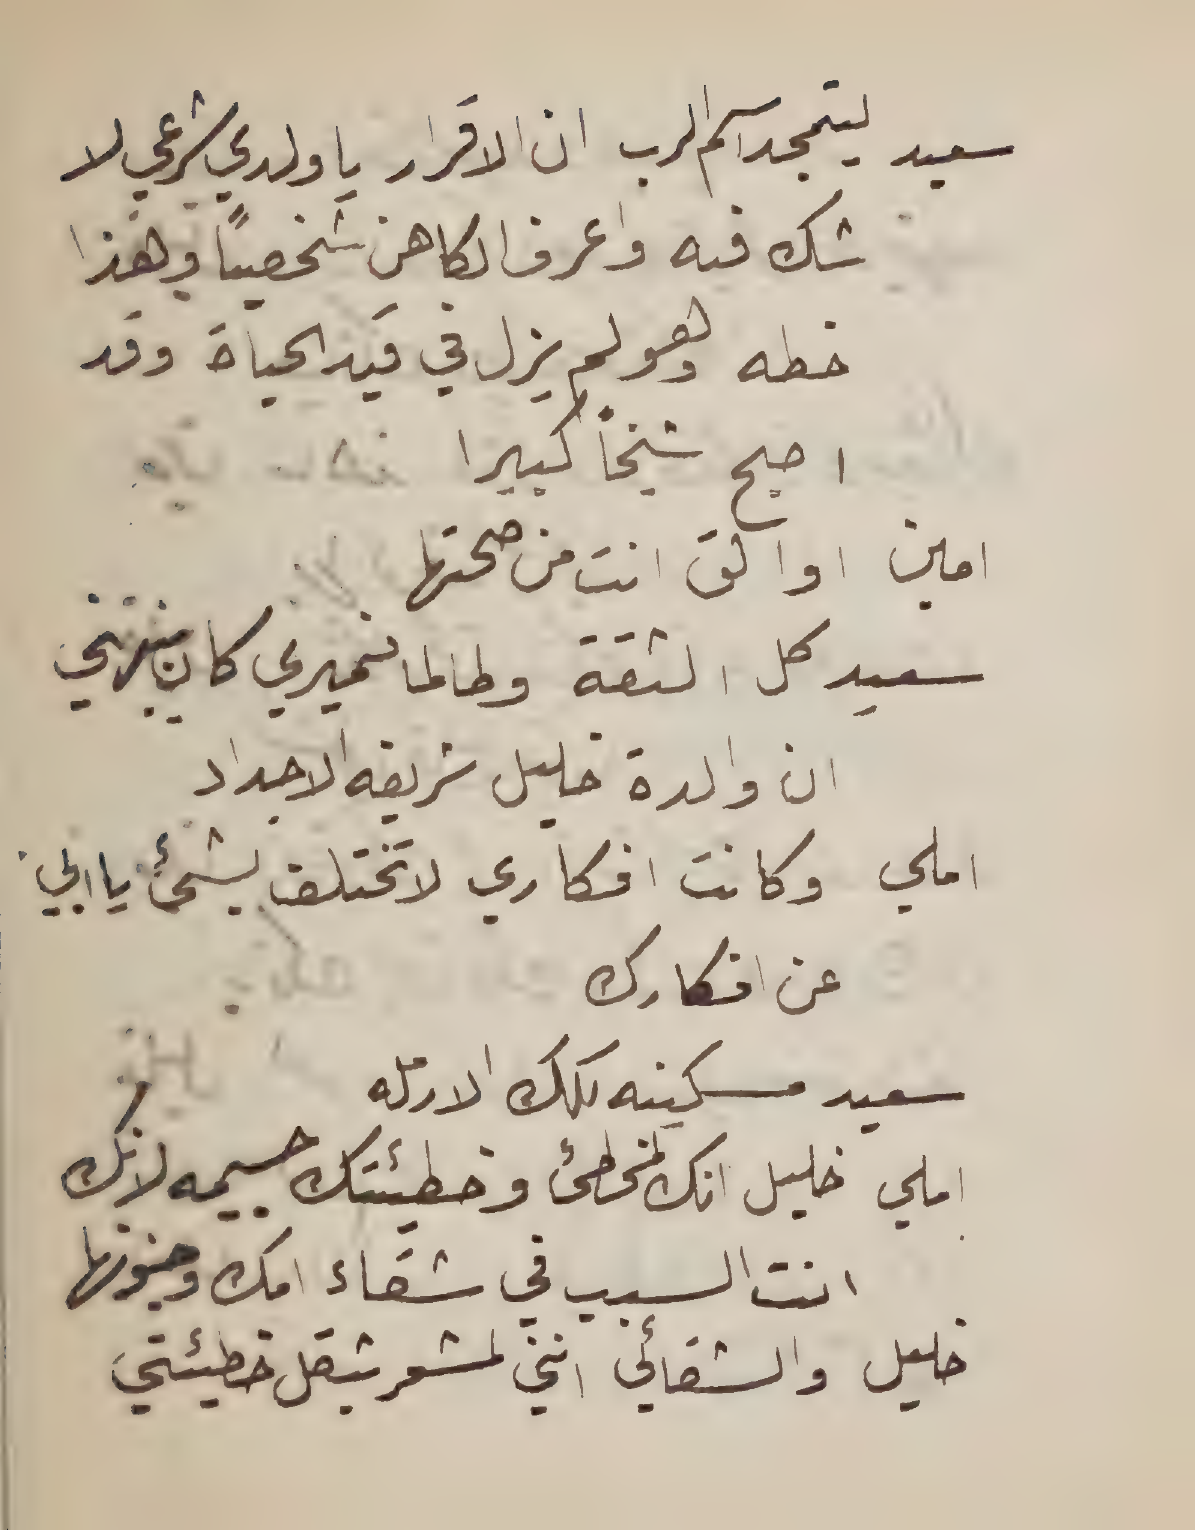 سعيد ليتمجد اسم الرب ان الاقرار يا ولدي شرعي لا
شك فيه واعرف الكاهن شخصياً وهذا
خطه وهو لم يزل في قيد الحياة وقد
اصبح شيخاً كبيرا
امين اواثق انت من صحتها
سعيد كل الثقة وطالما ضميري كان ينبهني
ان والدة خليل شريفه الاجداد
املي وكانت افكاري لا تختلف بشئ يا ابي
عن افكارك
سعيد مسكينه تلك الارمله
املي خليل انك لمخطئ وخطيئتك جسيمه لانك
انت السبب في شقاء امك وجنونها
خليل والشقائي انني لمشعر بثقل خطيئتي